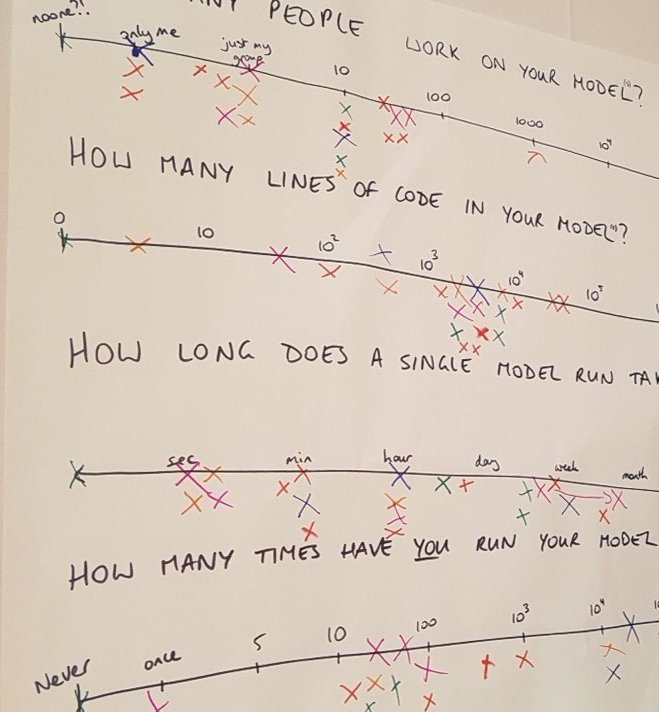 PEOPLE WORK ON YOUR MODEL(*)?
noone?! only me just my group 10 100 1000 10⁴
HOW MANY LINES OF CODE IN YOUR MODEL(*)?
0 10 10² 10³ 10⁴ 10⁵
HOW LONG DOES A SINGLE MODEL RUN TA
sec min hour day week month
HOW MANY TIMES HAVE YOU RUN YOUR MODEL
Never once 5 10 100 10³ 10⁴